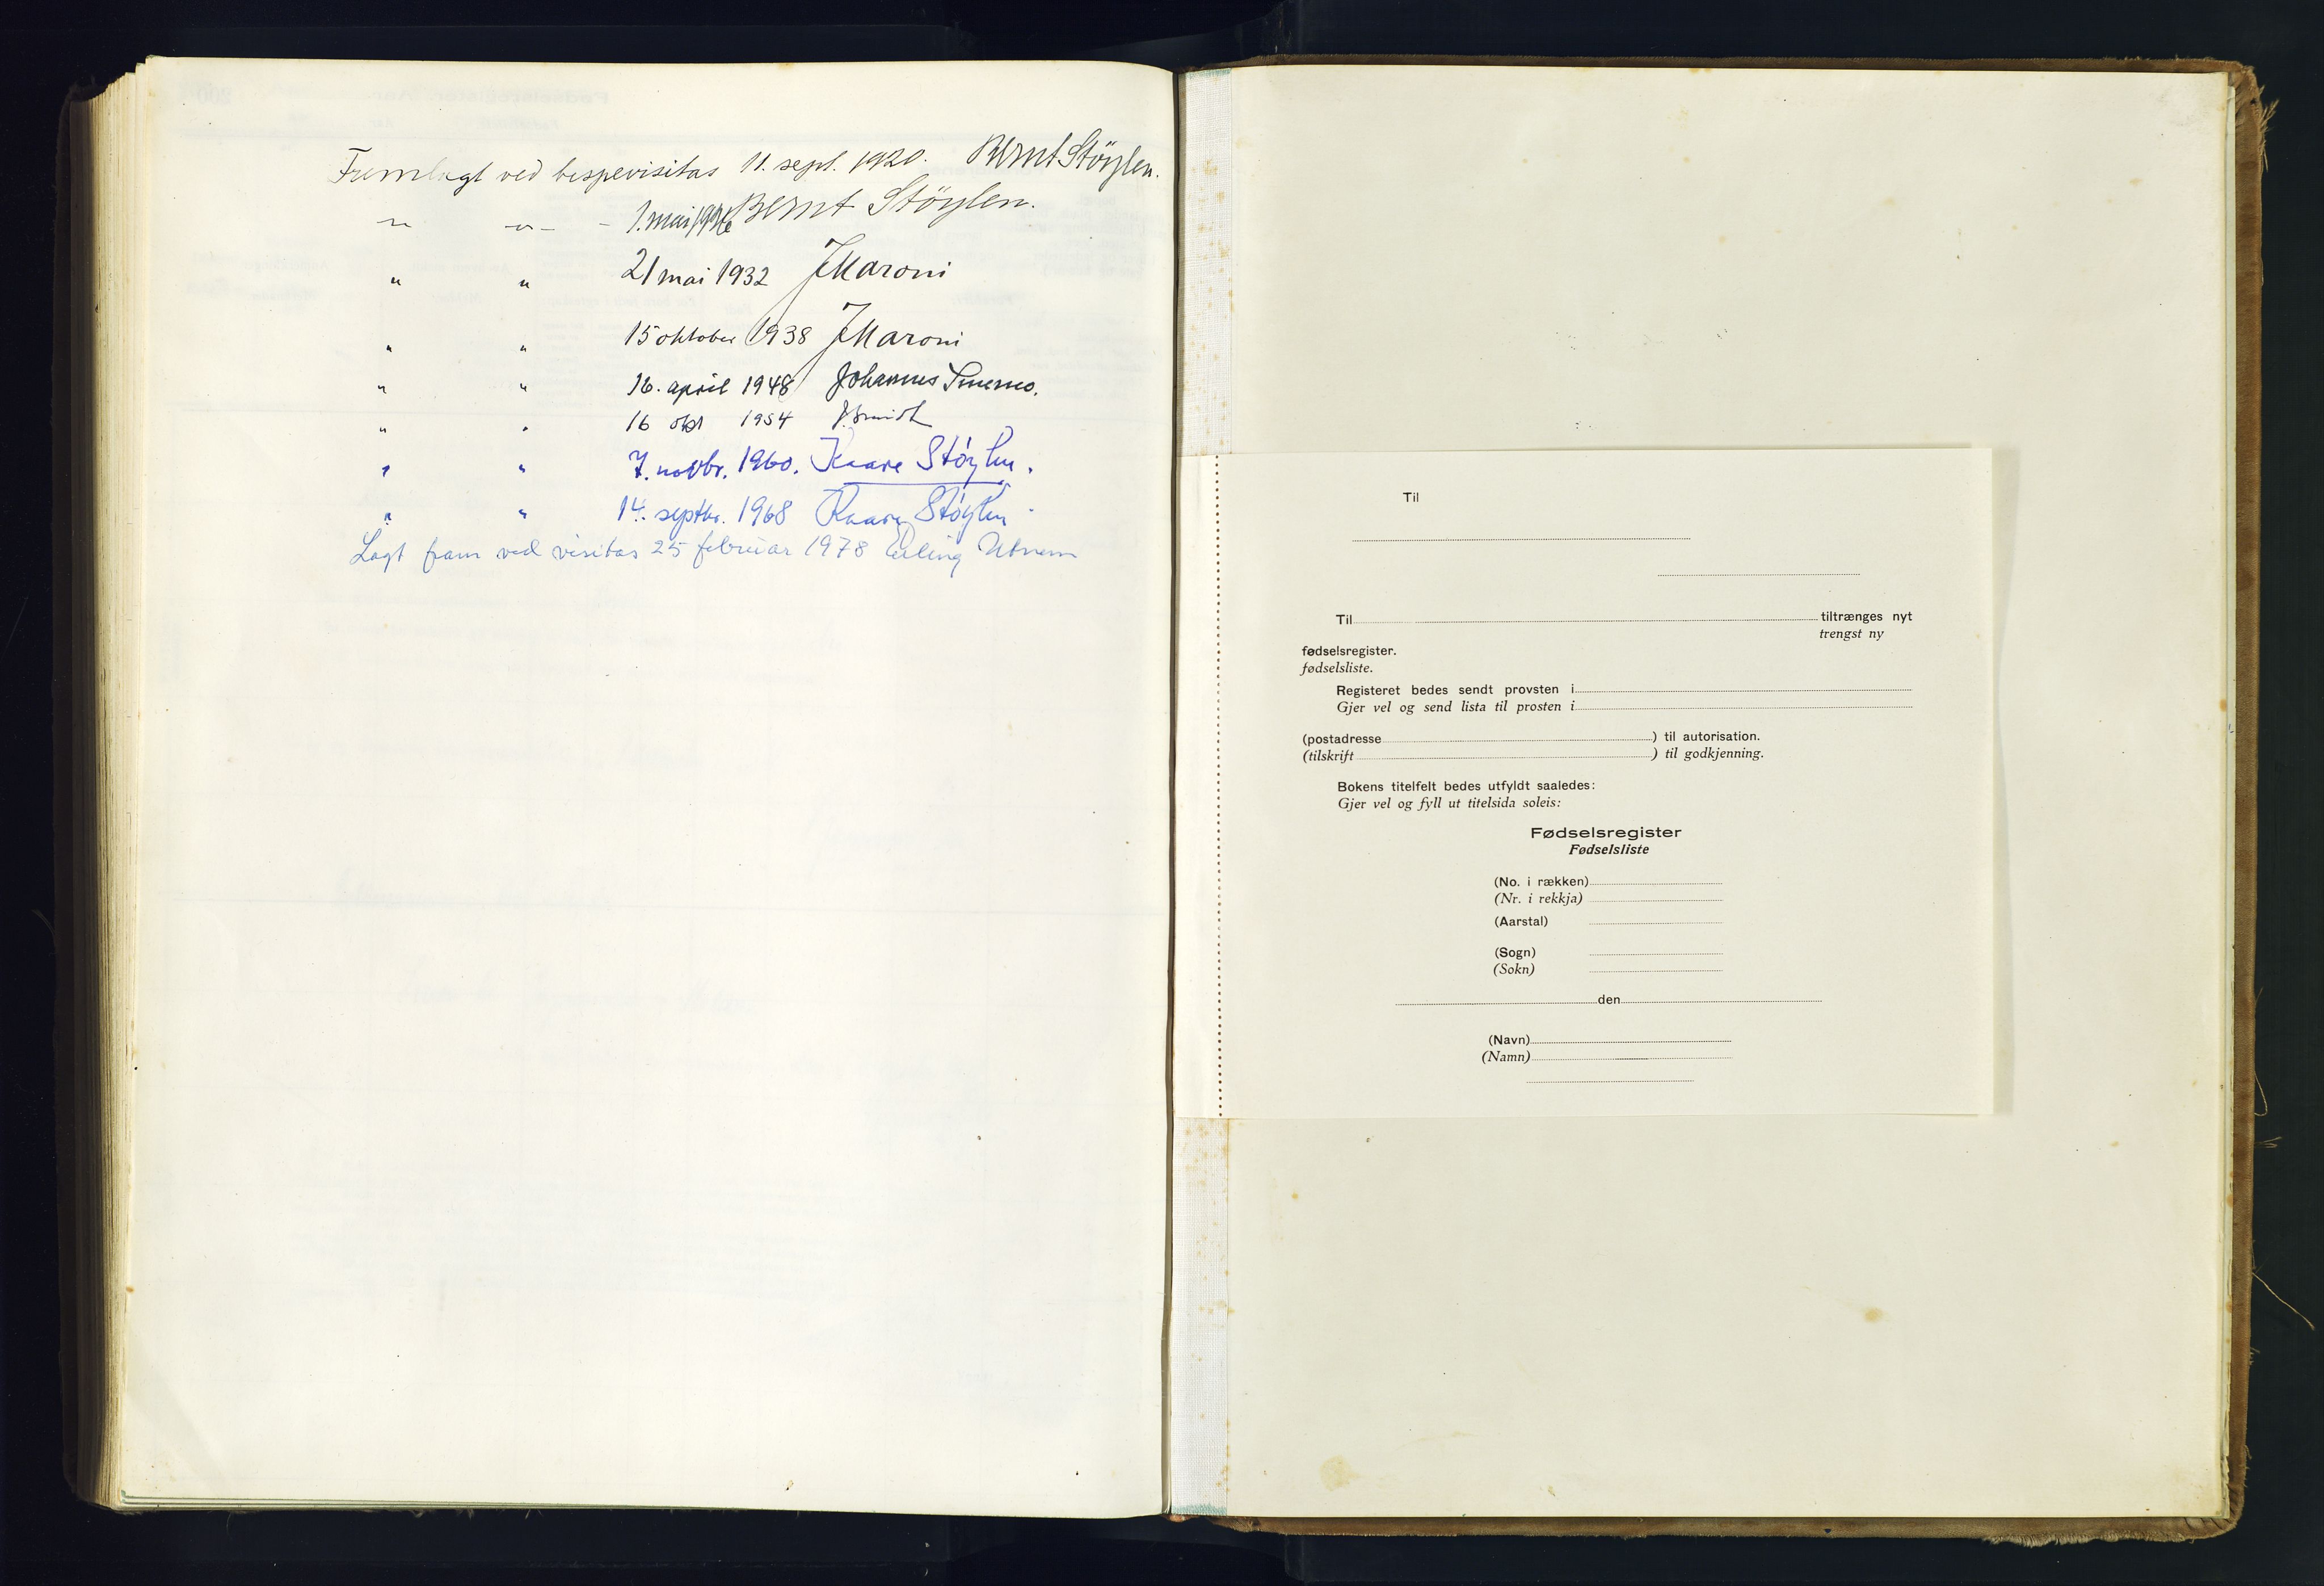 Fremlagt ved bispevisitas 11. sept. 1920. Bernt Støylen.
" " - 1. mai 1926 Bernt Støylen.
" " 21 mai 1932 J Maroni
" " 15 oktober 1938 J Maroni
" " 16. april 1948 Johannes Smemo.
" " 16 okt 1954 J. Smidt
" " 7. novbr. 1960. Kaare Støylen.
" " 14. septbr. 1968 Kaare Støylen
Lagt fram ved visitas 25 februar 1978 Erling Utnem
Til
Til tiltrænges nyt
trengst ny
fødselsregister.
fødselsliste.
Registeret bedes sendt provsten i
Gjer vel og send lista til prosten i
(postadresse ) til autorisation.
(tilskrift ) til godkjenning.
Bokens titelfelt bedes utfyldt saaledes:
Gjer vel og fyll ut titelsida soleis:
Fødselsregister
Fødselsliste
(No. i rækken)
(Nr. i rekkja)
(Aarstal)
(Sogn)
(Sokn)
den
(Navn)
(Namn)